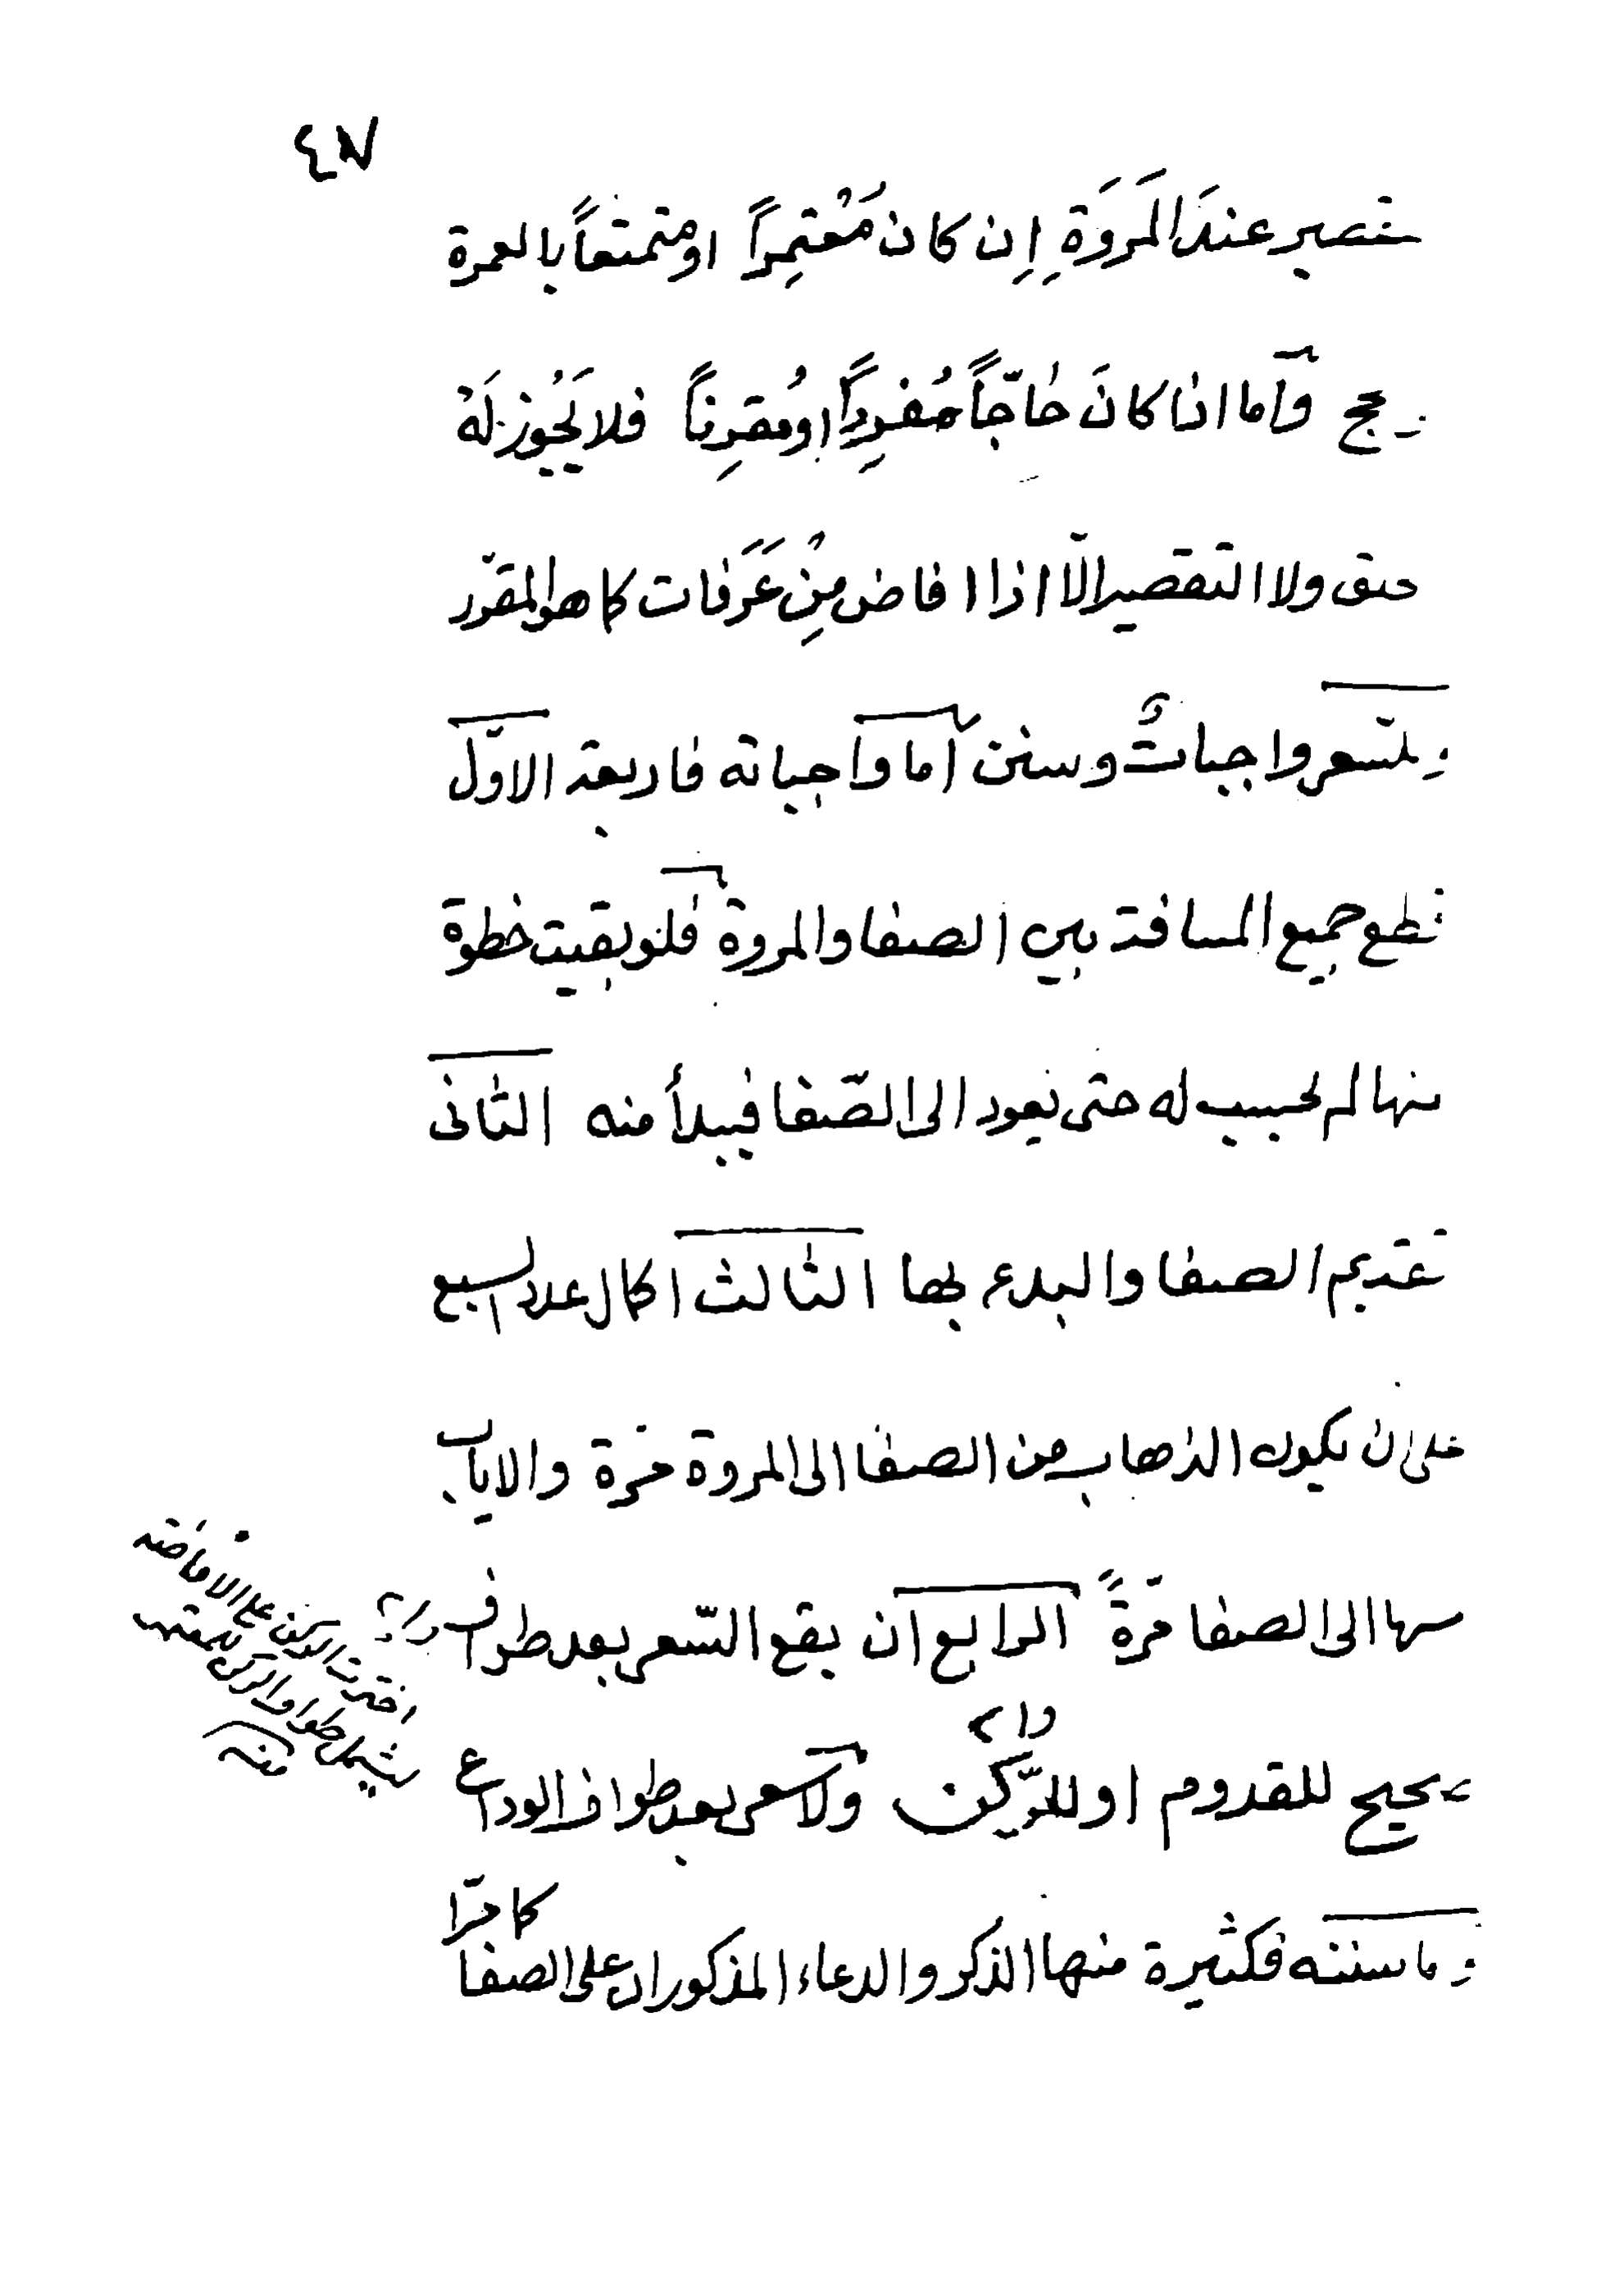 ٤٧
تقصير عندَ المَروَةِ إِن كان مُعْتمِراً او متمتعاً بالعمرة
حج وأما اذا كانَ حاجّاً مُفرِداً اومُقرِناً فلا يَجُوز لَهُ
حلق ولا التقصير الّا اذا افاض مِنْ عَرَفات كما هو المقرّر
وللسّعى واجباتٌ وسنن أما واجباته فاربعة الاوّل
قطع جميع المسافة بين الصفا والمروة فلو بقيت خطوة
منها لم يحسب له حتى يعود الى الصّفا فيبدأ منه الثانى
تقديم الصفا والبدء بها الثالث اكمال عدد السبع
على ان يكون الذهاب من الصفا الى المروة مرّة والاياب
منها الى الصفا مرّةً الرابع ان يقع السّعى بعد طواف
صحيح للقدوم او للرّكن ولا سعى بعد طواف الوداع
كما مرّا
وما سننه فكثيرة منها الذكر والدعاء المذكوران على الصفا
اخترت الركن على الافاضه
ليشمل طواف الركن للمعتمر
منه